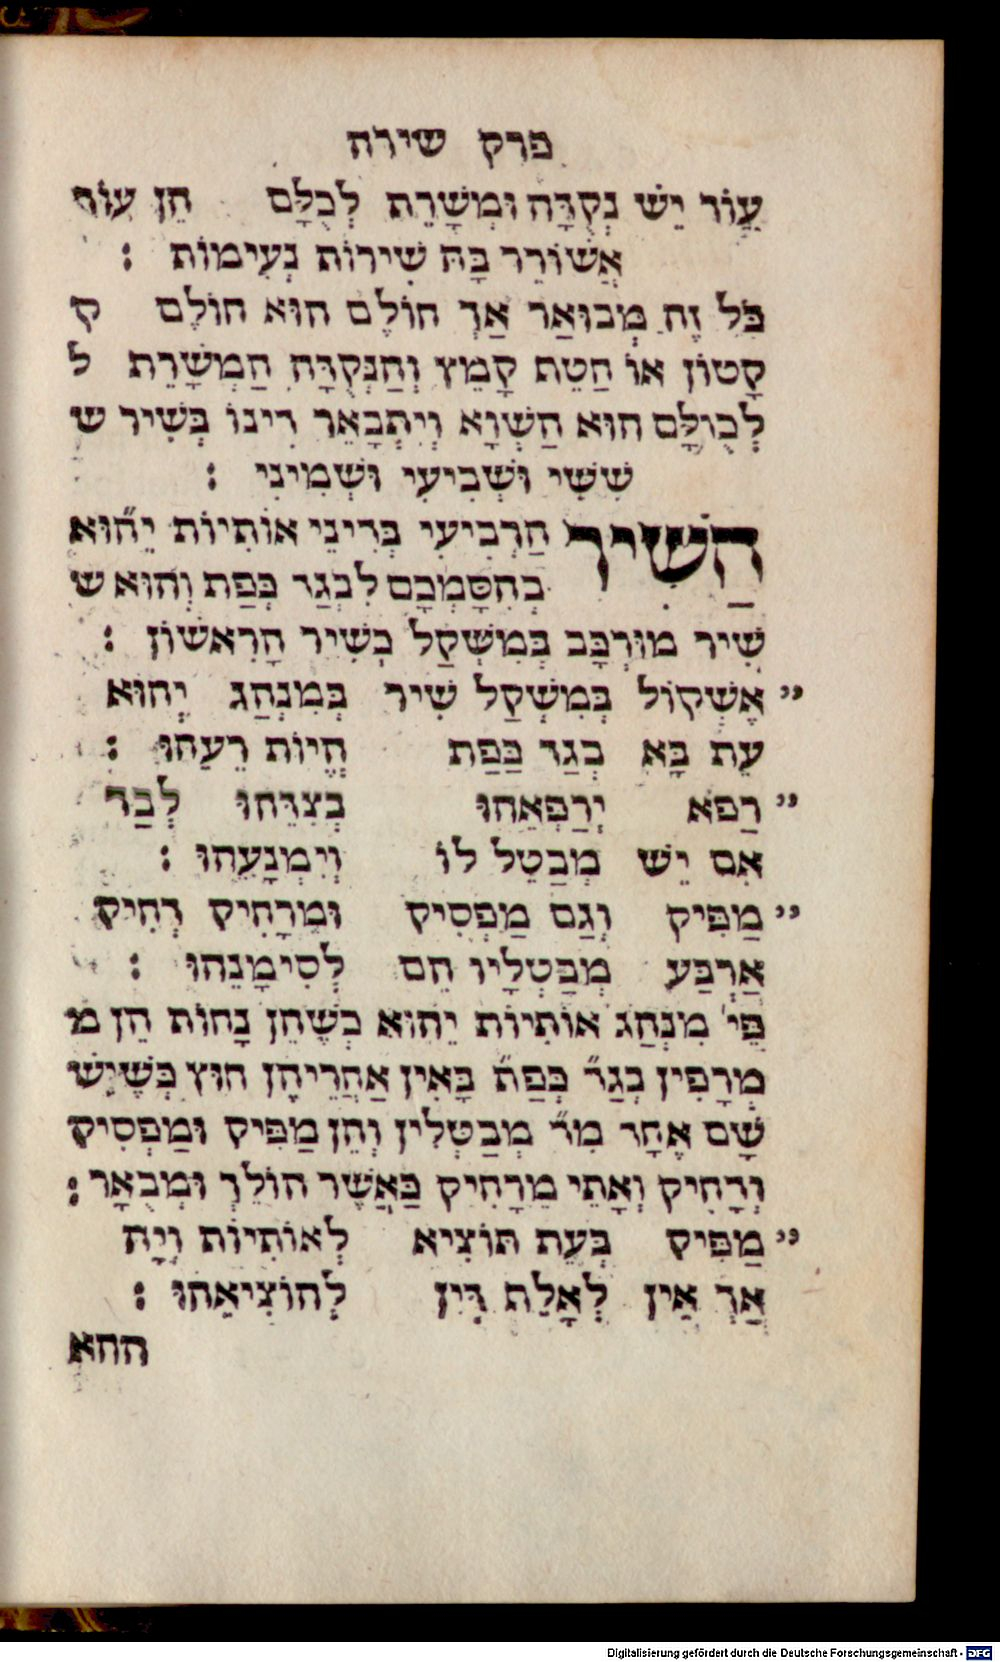 פרק שירה
עוֹד יֵשׁ נְקֻדָּה וּמְשָׁרֵת לְכֻלָּם הֵן עוֹד
אֲשׁוֹרֵר בָּהּ שִׁירוֹת נְעִימוֹת :
כָּל זֶה מְבוּאַר אַךְ חוֹלֶם הוּא חוֹלֶם ק
קָטוֹן אוֹ חַטֵת קָמֵץ וְהַנְּקֻדָּה הַמְשָׁרֵת ל
לְכֻולָּם הוּא הַשְׁוָא וְיִתְבָאֵר דִינוֹ בְּשִׁיר ש
שִׁשִׁי וּשְׁבִיעִי וּשְׁמִינִי :
הַשִׁיר הַרְבִיעִי בְּדִינֵי אוֹתִיוֹת יֵה֞וּא
בְהִסָּמְכָם לִבְגַד כְּפַת וְהוּא ש
שִׁיר מוּרְכָּב בְּמִשְׁקַל כְשִׁיר הָרִאשׁוֹן :
״ אֶשְׁקוֹל בְּמִשְׁקַל שִׁיר בְּמִנְהַג יְהוּא
עֵת בָּא בְגַד כַּפַת הֱיוֹת רֵעַהוּ :
״ רַפֹּא יְרַפְּאֵהוּ בְצִדֵּהוּ לְבַד
אִם יֵשׁ מְבַטֵל לוֹ וְיִמְנָעֵהוּ :
״ מַפִּיק וְגַם מַפְסִיק וּמֵרָחִיק דְחִיק
אַרְבַּע מְבַטְלָיו הֵם לְסִימָנֵהוּ :
פֵּי׳ מִנְהַג אוֹתִיוֹת יֵהוּא כְשֶׁהֵן נָחוֹת הֵן מ
מְרָפִין בְּגַד֞ כְּפַת֞ בָּאִין אַחֲרֵיהֶן חוּץ כְּשֶׁיֵּשׁ
שָׁם אֶחָד מִד֞ מְבַטְּלִין וְהֵן מַפִּיק וּמַפְסִיק
וְדָחִיק וְאָתֵי מֵרָחִיק כַּאֲשֶׁר הוֹלֵךְ וּמְבֹאָר :
״ מַפִּיק בְּעֵת תּוֹצִיא לְאוֹתִיוֹת וְיָהּ
אַךְ אֵין לְאָלֵת דִּין לְהוֹצִיאֵהוּ :
ההא
Digitalisierung gefördert durch die Deutsche Forschungsgemeinschaft - DFG